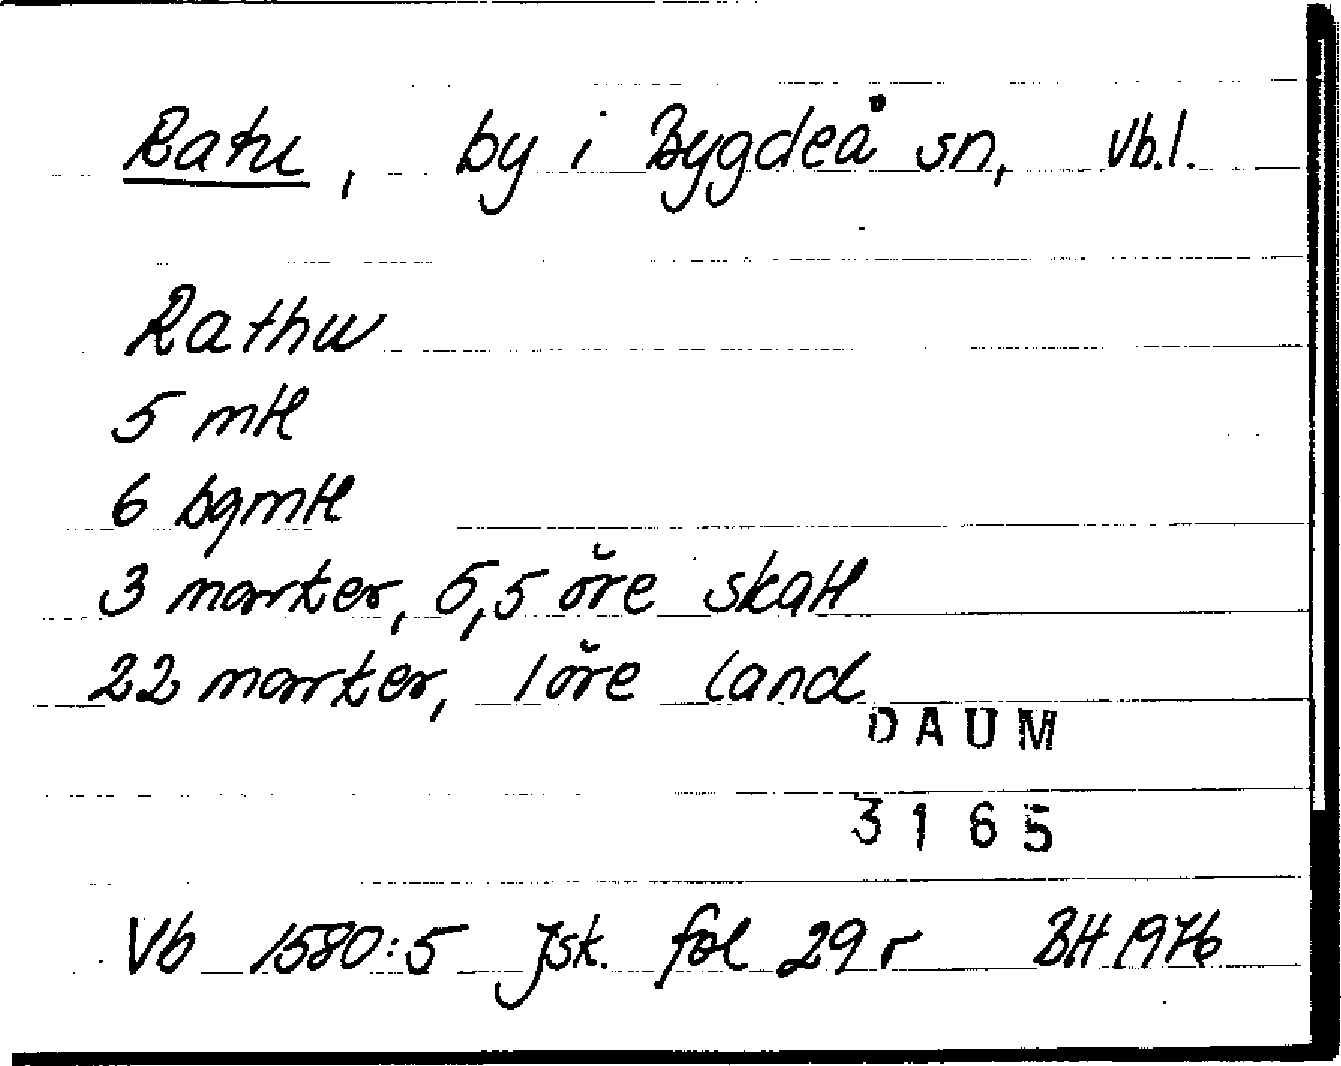 Ratu, by i Bygdeå sn, Vb.l.
Rathu
5 mtl
6 bgmtl
3 marker, 5,5 öre skatt
22 marker, 1 öre land
DAUM
3165
Vb 1580:5 Jsk. fol 29 r BH 1976